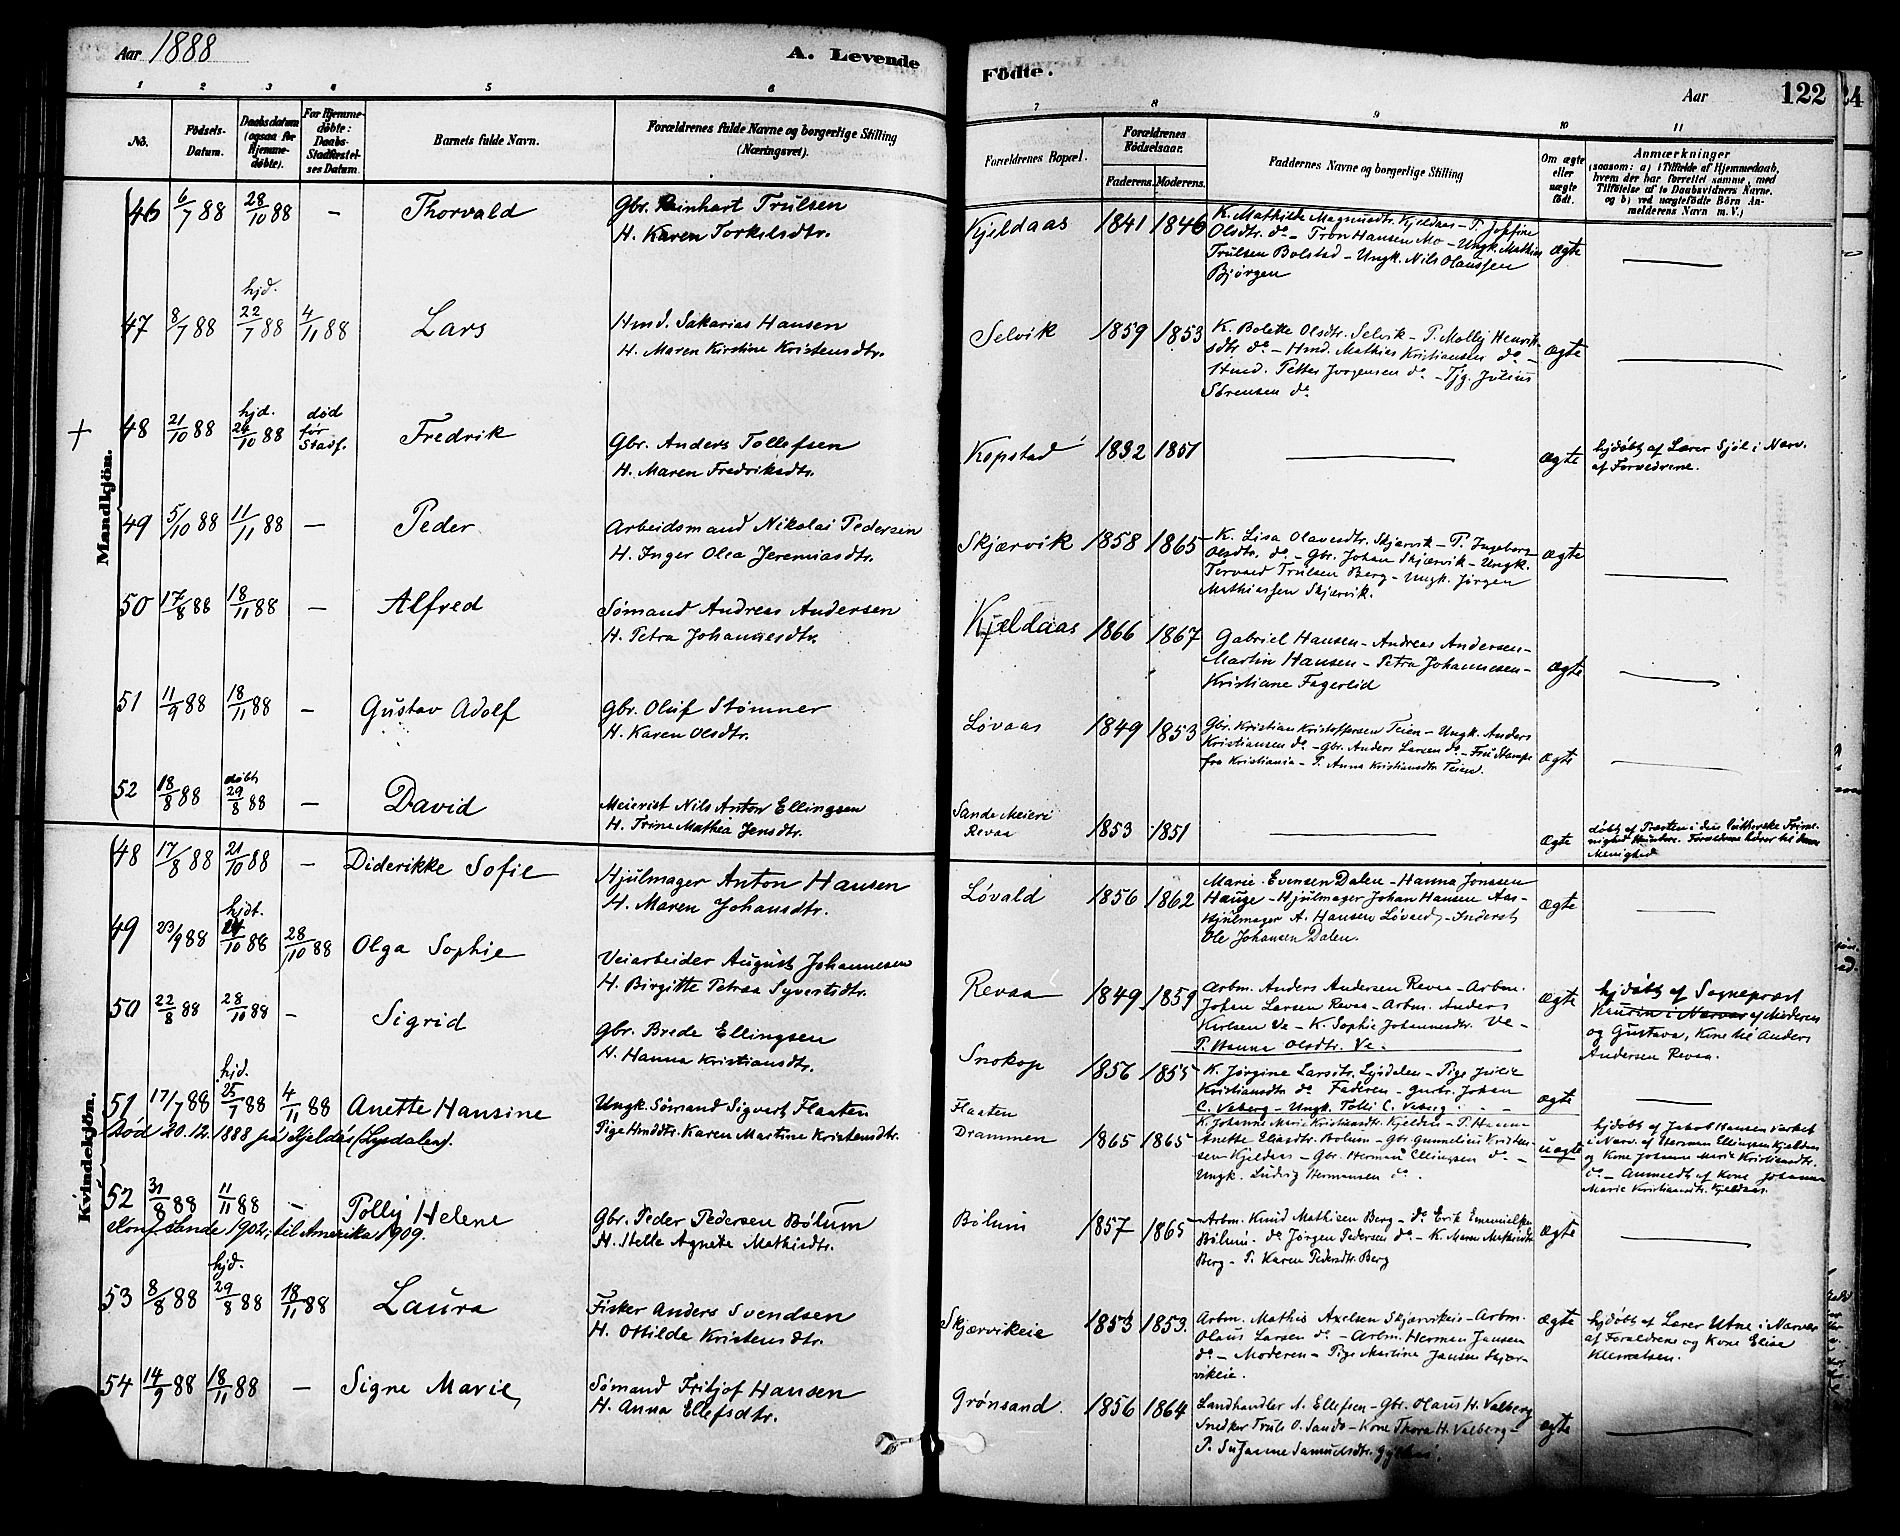 Aar 1888
A. Levende
Födte.
Aar
122
24
1 2 3 4 5 6
7 8 9 10 11
No.
Födsels-Datum.
Daabsdatum (ogsaa for Hjemme-døbte).
For Hjemme-døbte: Daabs-Stadfæstel-ses Datum.
Barnets fulde Navn.
Forældrenes fulde Navne og borgerlige Stilling (Næringsvei).
Forældrenes Bopæl.
Forældrenes Födselsaar.
Faderens. Moderens.
Faddernes Navne og borgerlige Stilling
Om ægte eller uægte födt.
Anmærkninger
(saasom: a) i Tilfælde af Hjemmedaab,
hvem der har forrettet samme, med
Tilföielse af to Daabsvidners Navne.
og b) ved uægtefödte Börn An-
melderens Navn m. V.)
Mandkjön.
46 6/7 88 28/10 88 — Thorvald
Gbr. Reinhart Trulsen
H. Karen Torkelsdtr.
Kjeldaas 1841 1846
K. Mathilde Magnusdtr. Kjeldaas - P. Josefine
Olsdtr. do - Tron Hansen Mo - Ungk. Mathias
Trulsen Bolstad - Ungk. Nils Olaussen
Bjørgen
ægte —
47 8/7 88 hjd. 22/7 88 4/11 88 Lars
Hmd. Sakarias Hansen
H. Maren Kirstine Kristensdtr.
Selvik 1859 1853
K. Bolette Olsdtr. Selvik - P. Molly Henrik-
sdtr do - Hmd. Mathias Kristiansen do -
Hmd. Petter Jørgensen do - Tjg. Julius
Sörensen do
ægte —
+ 48 21/10 88 hjd. 24/10 88 død før Stadf. Fredrik
Gbr. Anders Tollefsen
H. Maren Fredriksdtr.
Kopstad 1832 1851 — ægte
hjdøbt af Lærer Sjöl i Nærv.
af Forældrene.
49 5/10 88 11/11 88 — Peder
Arbeidsmand Nikolai Pedersen
H. Inger Olea Jeremiasdtr.
Skjærvik 1858 1865
K. Lisa Olavesdtr. Skjærvik - P. Ingeborg
Olsdtr. do - Gbr. Johan Skjærvik - Ungk.
Torvald Trulsen Berg - Ungk. Jörgen
Mathiassen Skjærvik.
ægte —
50 17/8 88 18/11 88 — Alfred
Sømand Andreas Andersen
H. Petra Johannesdtr.
Kjeldaas 1866 1867
Gabriel Hansen - Andreas Andersen -
Martin Hansen - Petra Johannesen -
Kristiane Fagerlid
ægte —
51 11/9 88 18/11 88 — Gustav Adolf
Gbr. Oluf Stømner
H. Karen Olsdtr.
Løvaas 1849 1853
Gbr. Kristian Kristoffersen Teien - Ungk. Anders
Kristiansen do - Gbr. Anders Larsen do - Fru Stampe
fra Kristiania - P. Anna Kristiansdtr. Teien.
ægte —
52 18/8 88 døbt 29/8 88 — David
Meierist Nils Anton Ellingsen
H. Trine Mathea Jensdtr.
Sande Meieri
Revaa
1853 1851 — ægte
døbt af Præsten i den lutherske Frime-
nighed. Forældrene hører til denne
Menighed
Kvindekjön.
48 17/8 88 21/10 88 — Diderikke Sofie
Hjulmager Anton Hansen
H. Maren Johansdtr.
Løvald 1856 1862
Marie Evensen Dalen - Hanna Jonssen
Hauge - Hjulmager Johan Hansen Aas -
Hjulmager A. Hansen Løvald - Inderst
Ole Johansen Dalen.
ægte —
49 23/9 88 hjdt. 24/10 88 28/10 88 Olga Sophie
Veiarbeider August Johannesen
H. Birgitte Petrea Syvertsdtr.
Revaa 1849 1859
Arbm. Anders Andersen Revaa - Arbm.
Johan Larsen Revaa - Arbm. Anders
Karlsen Ve - K. Sophie Johannesdtr. Ve -
P. Hanna Olsdtr. Ve.
ægte
hjdøbt af Sognepræst
i Nærvær af Moderen
og Gustava, Kone til Anders
Andersen Revaa.
50 22/8 88 28/10 88 — Sigrid
Gbr. Brede Ellingsen
H. Hanna Kristiansdtr.
Snokop 1856 1855
K. Jørgine Larsdtr. Lysdalen - Pige Julie
Kristiansdtr do Faderen - Gbr. Johan
C. Veberg - Ungk. Tolli C. Veberg
ægte —
51 17/7 88 hjd. 25/7 88 4/11 88 Anette Hansine
Død 20.12.1888 på Kjeldås (Lysdalen).
Ungk. Sømand Sigvart Flaaten
Pige Hmdtr. Karen Martine Kristensdtr.
Flaaten
Drammen
1865 1865
K. Johanne Marie Kristiansdtr. Kjeldaas - P. Hanna
Anette Eliasdtr. Bolum - Gbr. Gunnelius Kristen-
sen Kjeldaas - Gbr. Herman Ellingsen do -
Ungk. Ludvig Hermansen do.
uægte
hjdøbt af Jakob Hansen
i Nærv. af Herman Ellingsen Kjeldaas
og Kone Johanne Marie Kristiansdtr.
do - Anmeldt af Kone Johanne
Marie Kristiansdtr. Kjeldaas.
52 31/8 88 11/11 88 — Polly Helene
Konf. Sande 1902; til Amerika 1909.
Gbr. Peder Pedersen Bølum
H. Helle Agnete Mathisdtr.
Bölum 1857 1865
Arbm. Knud Mathisen Berg - do Erik Emanuelsen
Bölum. do Jörgen Pedersen do - K. Maren Mathisdtr
Berg - P. Karen Pedersdtr. Berg
ægte —
53 8/8 88 hjd. 29/8 88 18/11 88 Laura
Fisker Anders Svendsen
H. Ottilde Kristensdtr.
Skjærvikeie 1853 1853.
Arbm. Mathis Axelsen Skjærvikeie - Arbm.
Olaus Larsen do - Arbm. Herman Jansen
do - Moderen - Pige Martine Jansen Skjær-
vikeie.
ægte
hjdøbt af Lærer Utne i Nærvær
af Forældrene og Kone Elise
Klemetsen.
54 14/9 88 18/11 88 — Signe Marie
Sømand Fritjof Hansen
H. Anna Ellefsdtr.
Grønsand. 1856 1864
Landhandler A. Ellefsen - Gbr. Olaus H. Valberg
Snedker Truls O. Sands - Kone Thora H. Valberg -
P. Susanne Samuelsdtr.
ægte —